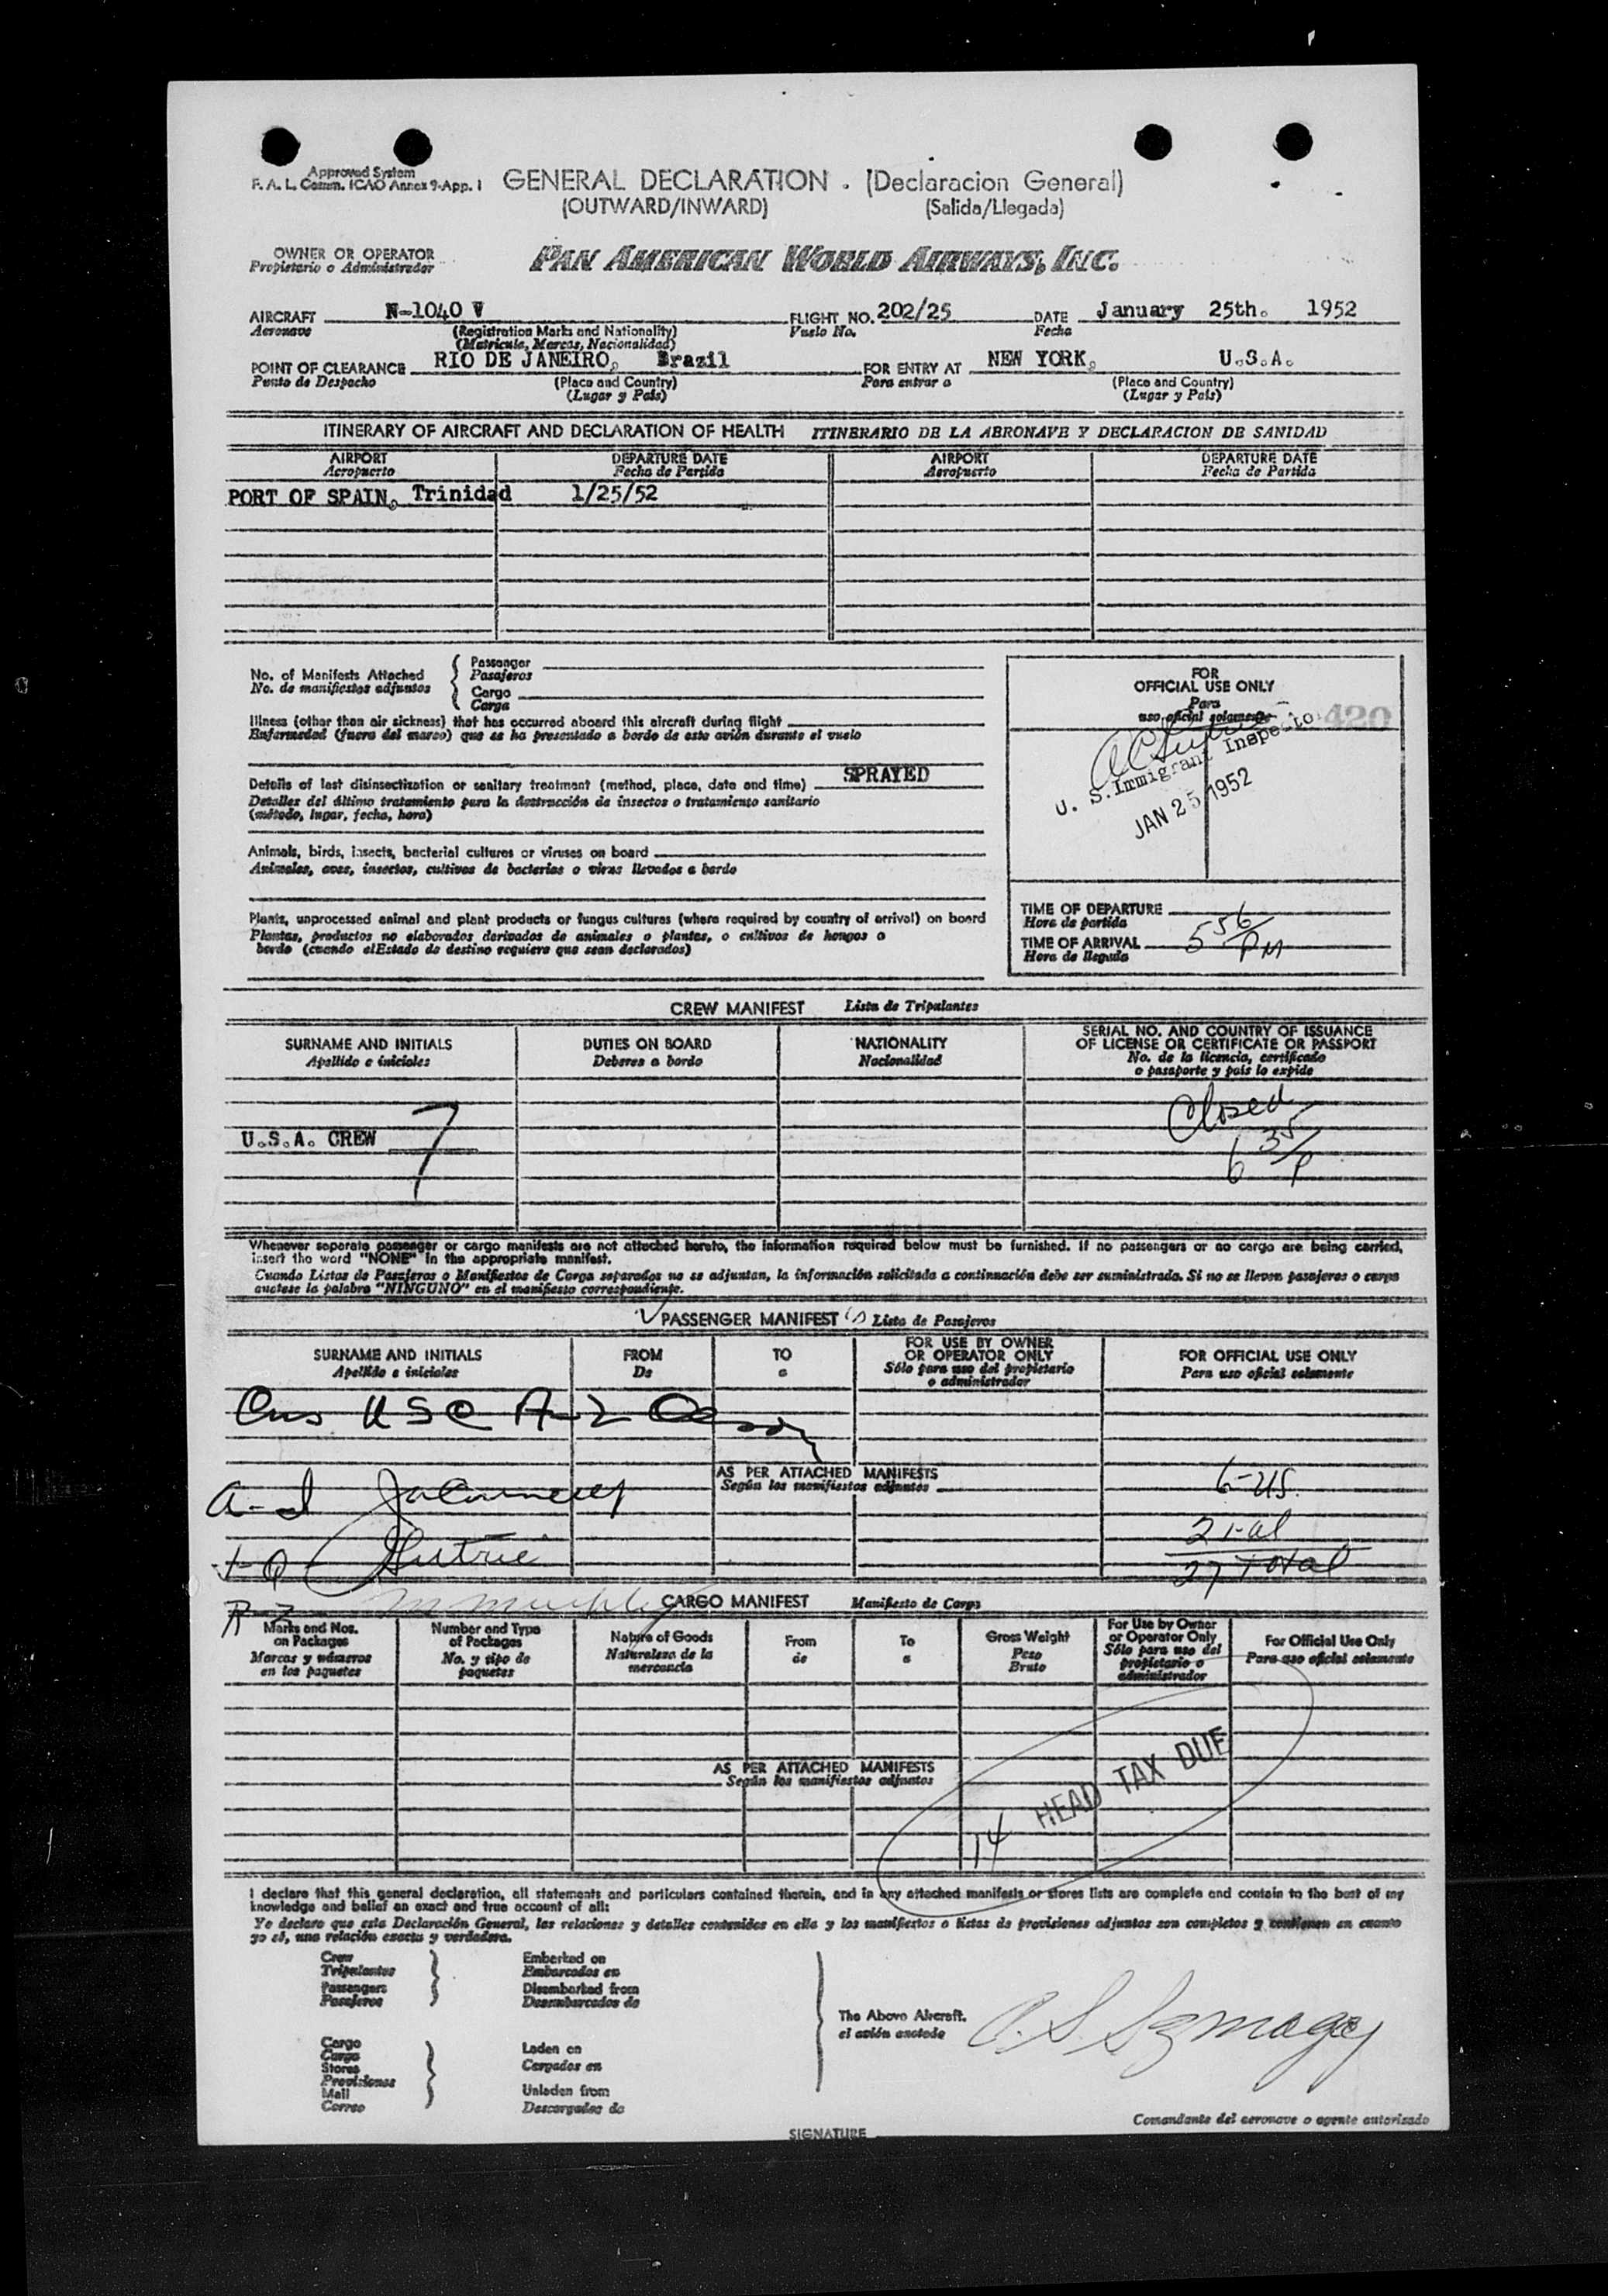 Approved System
F. A. L. Comm. ICAO Annex 9-App. 1
GENERAL DECLARATION . (Declaracion General)
(OUTWARD/INWARD) (Salida/Llegada)
OWNER OR OPERATOR
Propietario o Administrador
PAN AMERICAN WORLD AIRWAYS, INC.
AIRCRAFT N-1040 V FLIGHT NO. 202/25 DATE January 25th. 1952
Aeronave (Registration Marks and Nationality) Vuelo No. Fecha
(Matricula, Marcas, Nacionalidad)
POINT OF CLEARANCE RIO DE JANEIRO, Brazil FOR ENTRY AT NEW YORK, U.S.A.
Punto de Despacho (Place and Country) Para entrar a (Place and Country)
(Lugar y País) (Lugar y País)
ITINERARY OF AIRCRAFT AND DECLARATION OF HEALTH ITINERARIO DE LA AERONAVE Y DECLARACION DE SANIDAD
AIRPORT DEPARTURE DATE AIRPORT DEPARTURE DATE
Aeropuerto Fecha de Partida Aeropuerto Fecha de Partida
PORT OF SPAIN, Trinidad 1/25/52
No. of Manifests Attached
No. de manifiestos adjuntos
Passenger
Pasajeros
Cargo
Carga
Illness (other than air sickness) that has occurred aboard this aircraft during flight
Enfermedad (fuera del mareo) que se ha presentado a bordo de este avión durante el vuelo
Details of last disinsectization or sanitary treatment (method, place, date and time) SPRAYED
Detalles del último tratamiento para la destrucción de insectos o tratamiento sanitario
(método, lugar, fecha, hora)
Animals, birds, insects, bacterial cultures or viruses on board
Animales, aves, insectos, cultivos de bacterias o virus llevados a bordo
Plants, unprocessed animal and plant products or fungus cultures (where required by country of arrival) on board
Plantas, productos no elaborados derivados de animales o plantas, o cultivos de hongos a
bordo (cuando elEstado de destino requiera que sean declarados)
FOR
OFFICIAL USE ONLY
Para
uso oficial solamente
420
U. S. Immigrant Inspector
JAN 25 1952
TIME OF DEPARTURE
Hora de partida
TIME OF ARRIVAL 5 56/PM
Hora de llegada
CREW MANIFEST Lista de Tripulantes
SURNAME AND INITIALS DUTIES ON BOARD NATIONALITY SERIAL NO. AND COUNTRY OF ISSUANCE
OF LICENSE OR CERTIFICATE OR PASSPORT
Apellido e iniciales Deberes a bordo Nacionalidad No. de la licencia, certificado
o pasaporte y país lo expide
Closed
U.S.A. CREW 7
6 35/P
Whenever separate passenger or cargo manifests are not attached hereto, the information required below must be furnished. If no passengers or no cargo are being carried,
insert the word "NONE" in the appropriate manifest.
Cuando Listas de Pasajeros o Manifiestos de Carga separados no se adjuntan, la información solicitada a continuación debe ser suministrada. Si no se lleven pasajeros o carga
anótese la palabra "NINGUNO" en el manifiesto correspondiente.
PASSENGER MANIFEST Lista de Pasajeros
SURNAME AND INITIALS FROM TO FOR USE BY OWNER
OR OPERATOR ONLY FOR OFFICIAL USE ONLY
Apellido e iniciales De a Sólo para uso del propietario
o administrador Para uso oficial solamente
USC A-Z
AS PER ATTACHED MANIFESTS
Según los manifiestos adjuntos
6-US.
21-al
27 Total
CARGO MANIFEST Manifiesto de Carga
Marks and Nos.
on Packages
Marcas y números
en los paquetes
Number and Type
of Packages
No. y tipo de
paquetes
Nature of Goods
Naturaleza de la
mercancia
From
de
To
a
Gross Weight
Peso
Bruto
For Use by Owner
or Operator Only
Sólo para uso del
propietario o
administrador
For Official Use Only
Para uso oficial solamente
AS PER ATTACHED MANIFESTS
Según los manifiestos adjuntos
14 HEAD TAX DUE
I declare that this general declaration, all statements and particulars contained therein, and in any attached manifests or stores lists are complete and contain to the best of my
knowledge and belief an exact and true account of all:
Yo declaro que esta Declaración General, las relaciones y detalles contenidos en ella y los manifiestos o listas de provisiones adjuntos son completos y contienen en cuanto
yo sé, una relación exacta y verdadera.
Crew
Tripulantes
Passengers
Pasajeros
Embarked on
Embarcados en
Disembarked from
Desembarcados de
Cargo
Carga
Stores
Provisiones
Mail
Correo
Laden on
Cargados en
Unladen from
Descargados de
The Above Aircraft.
el avión anotado
Comandante del aeronave o agente autorizado
SIGNATURE